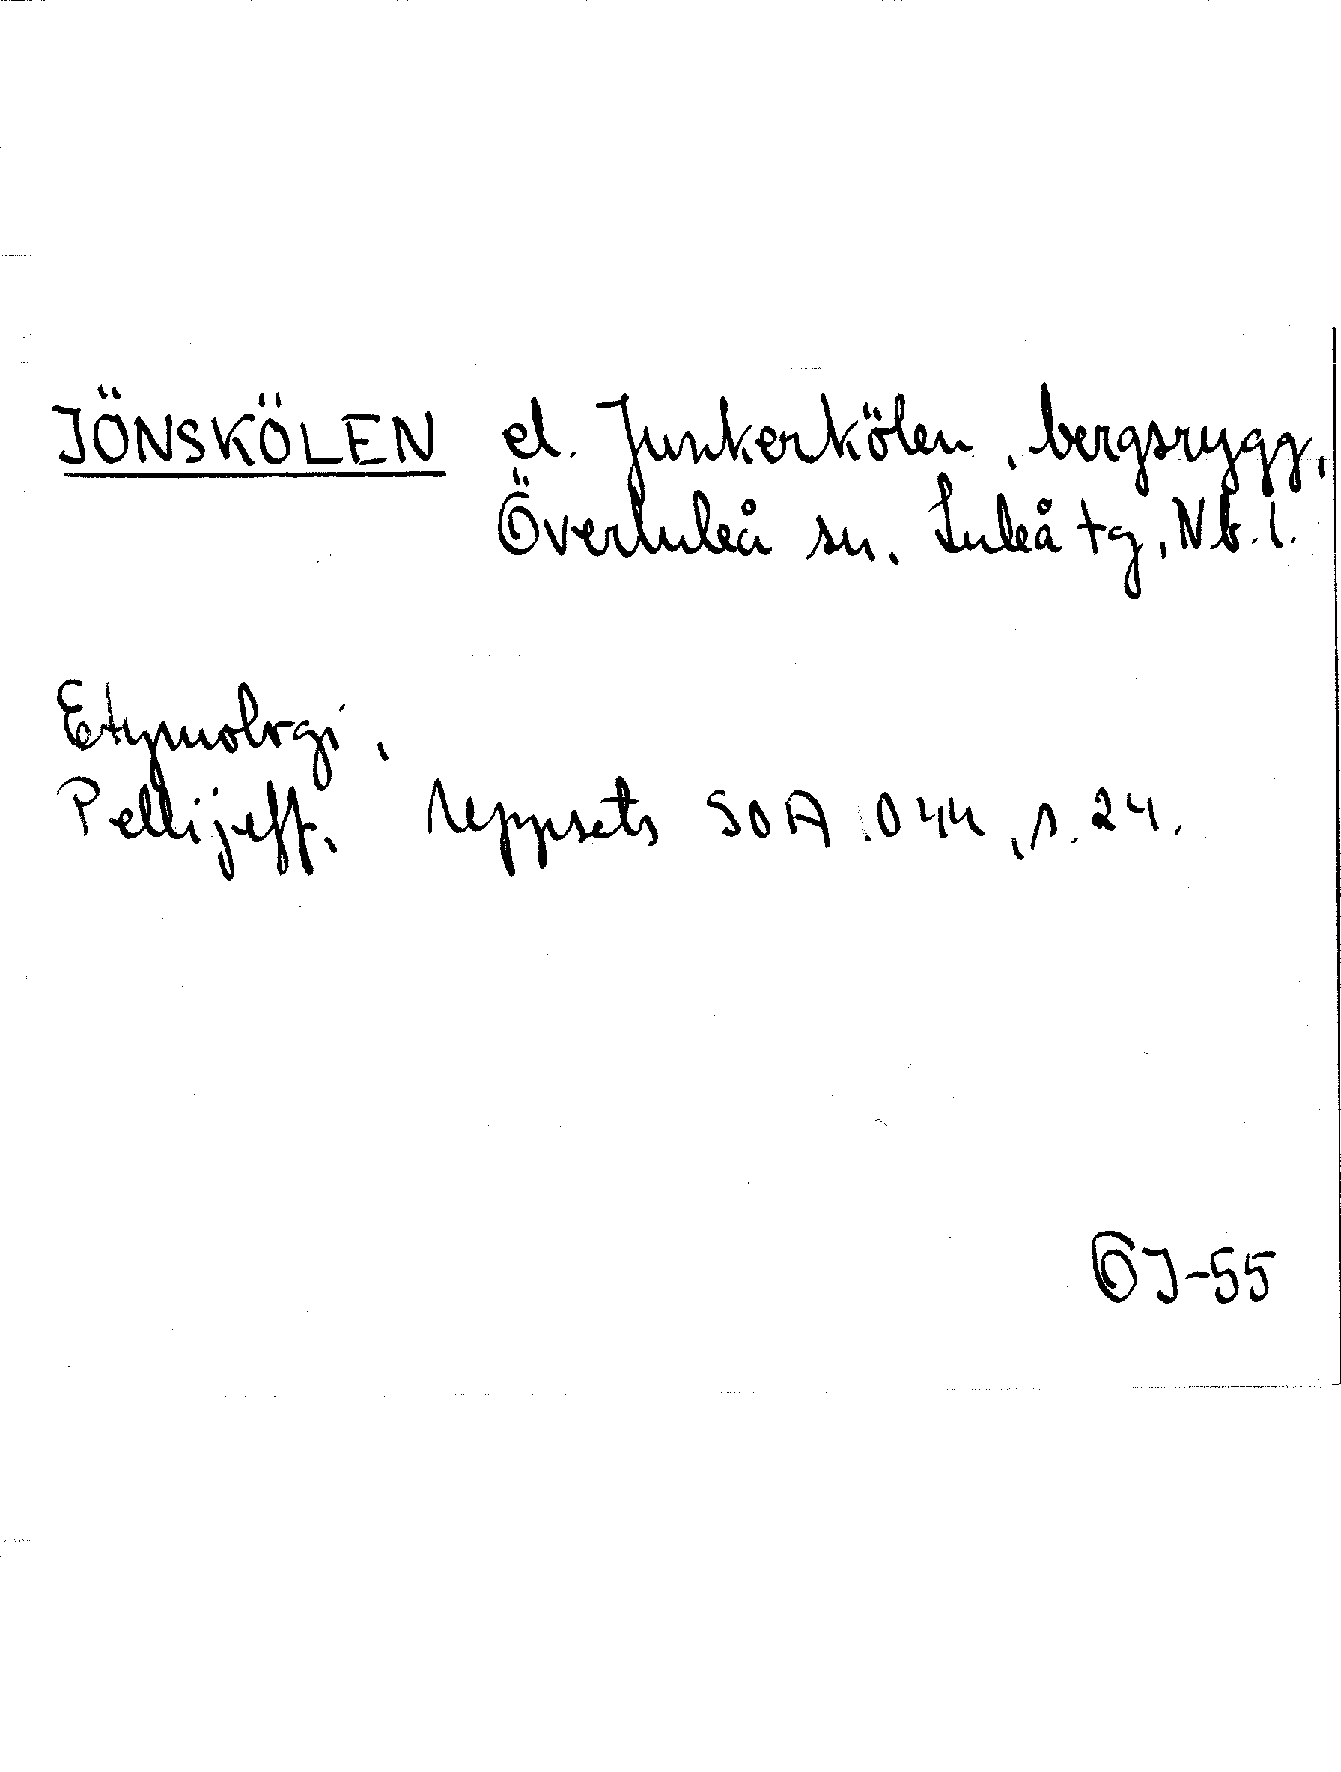 JÖNSKÖLEN el. Junkerkölen, bergsrygg,
Överluleå sn. Luleå tg, Nb. l.
Etymologi,
Pellijeff, uppsats SOA 044, s. 24.
ÖJ-55